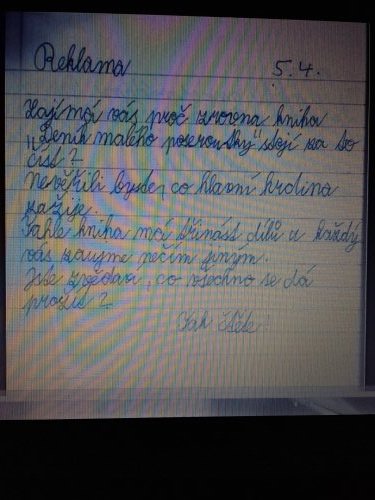 Reklama 5.4.
Zajímá vás proč zrovna kniha
„Deník malého poseroutky" stojí za to
číst?
Nevěřili byste, co hlavní hrdina
zažije.
Tahle kniha má třináct dílů a každý
vás zaujme něčím jiným.
Jste zvědaví, co všechno se dá
prožít?
Tak čtěte!